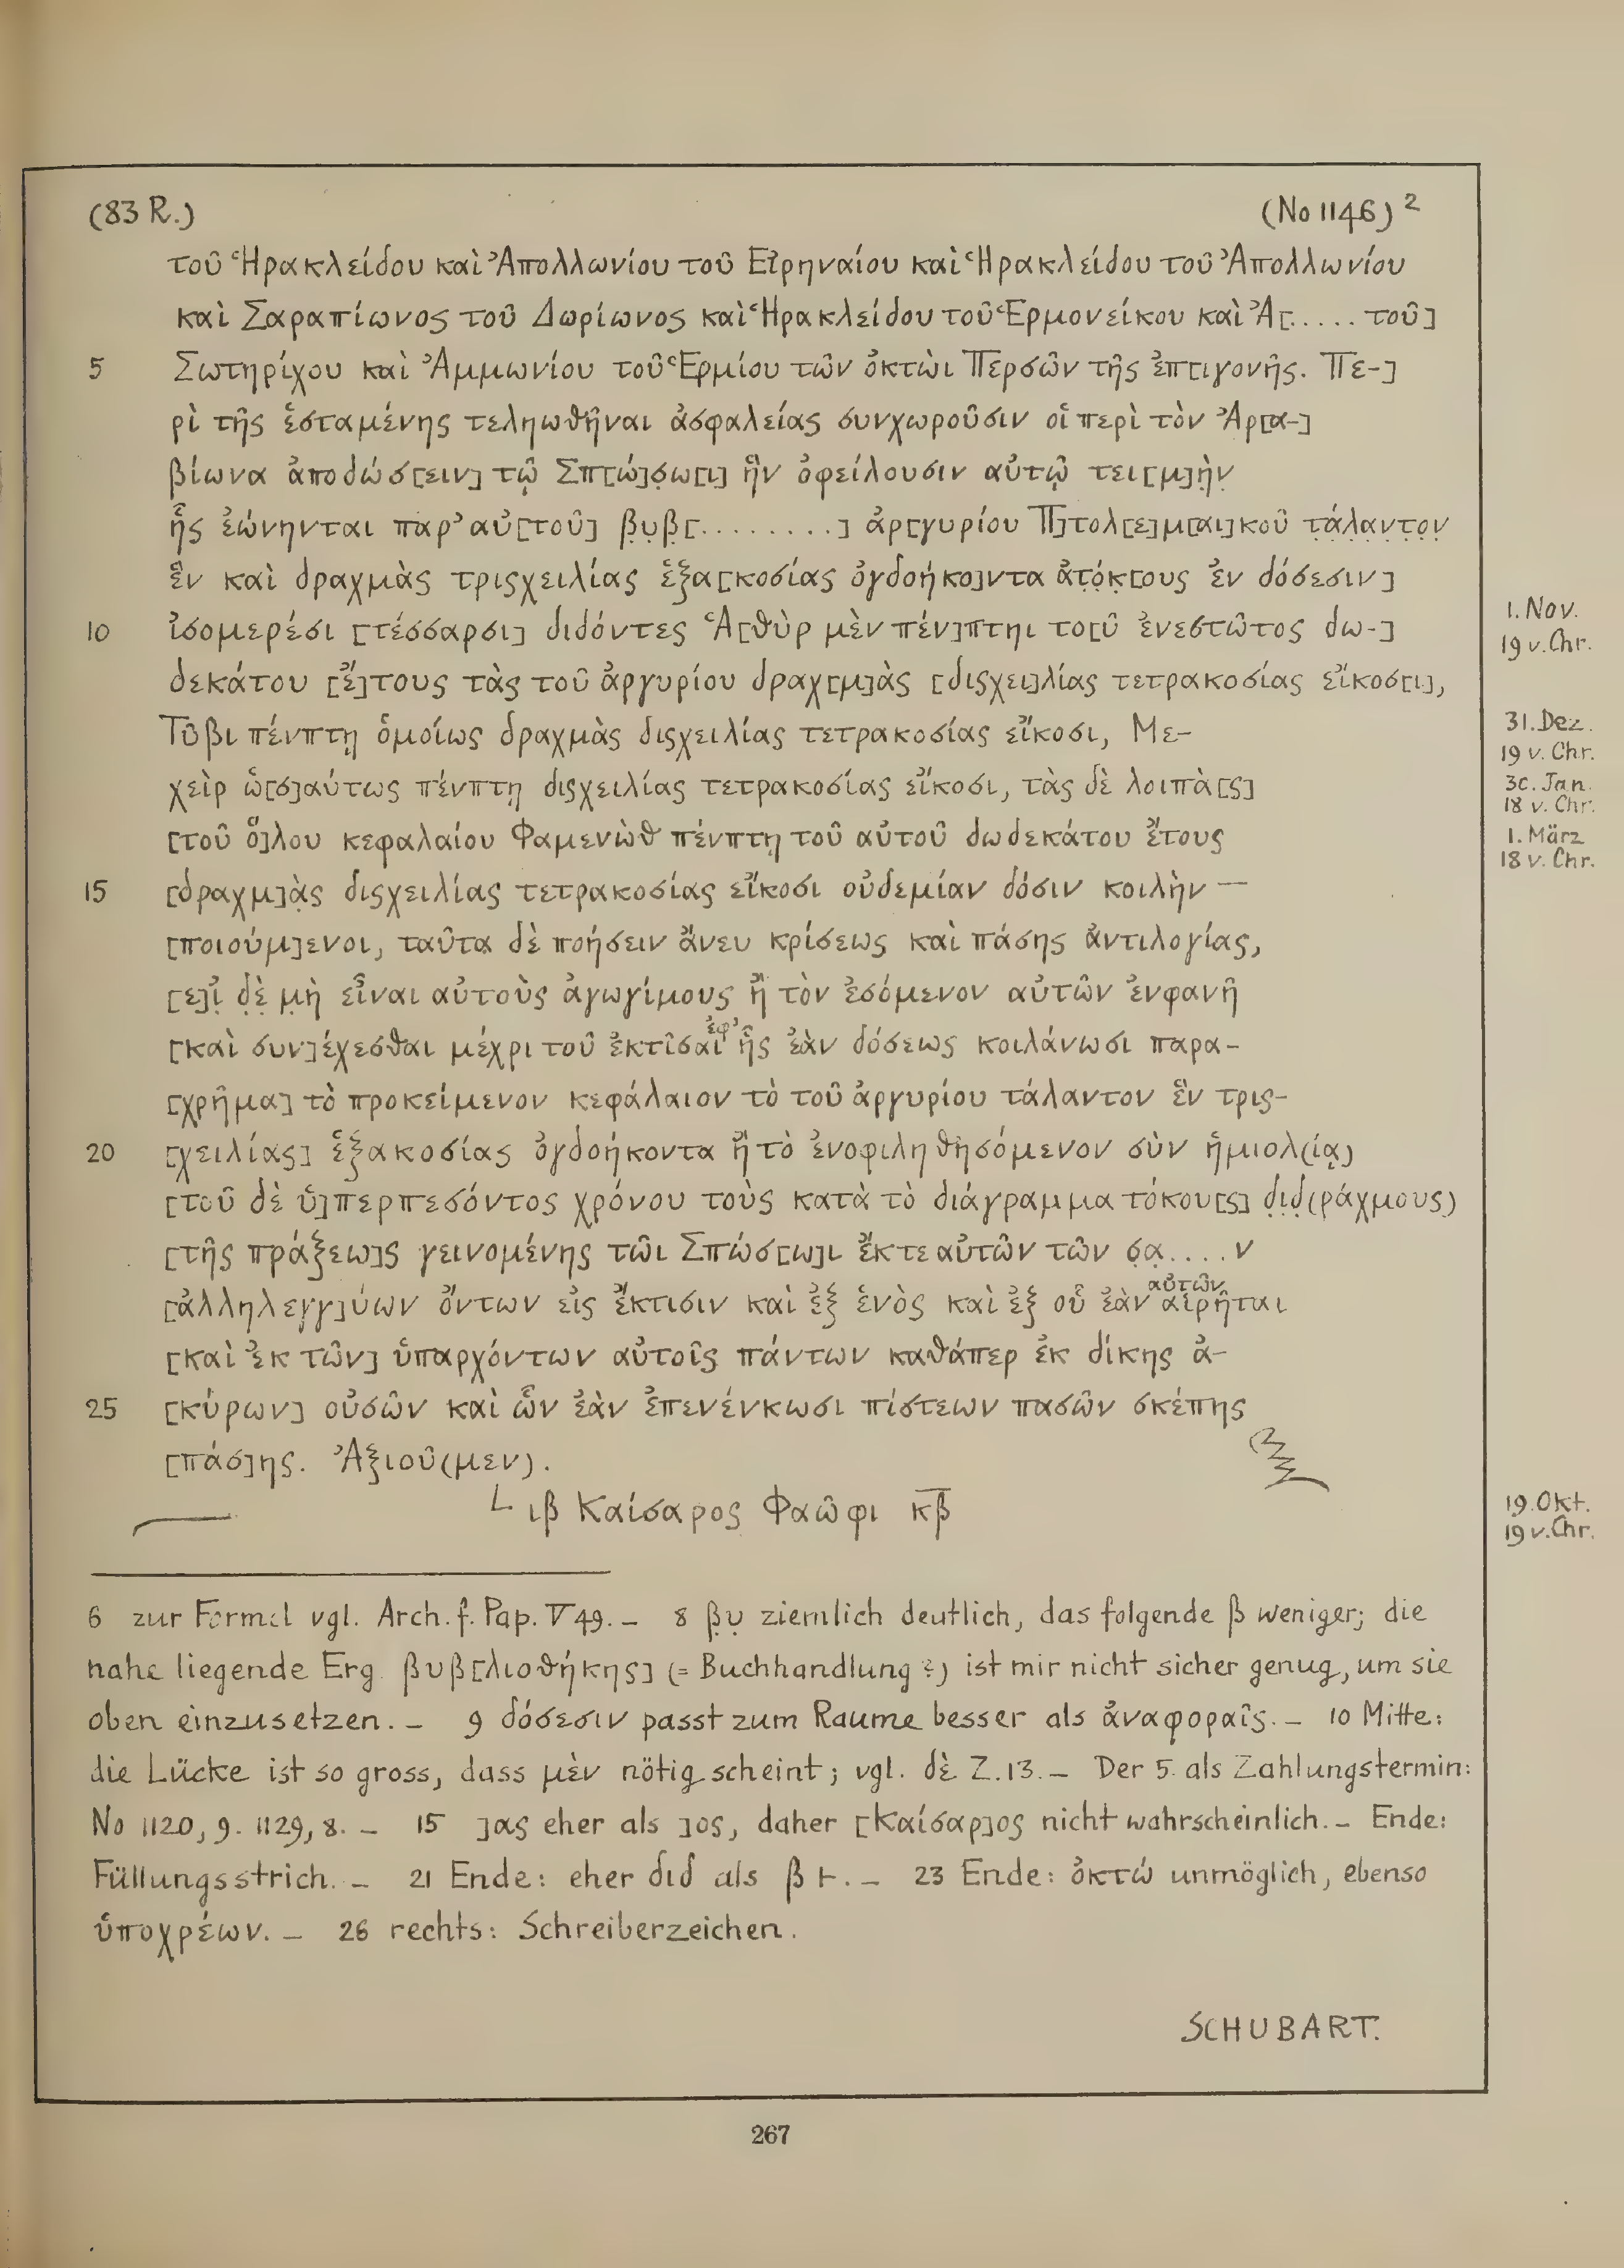 (83 R.) (No 1146) 2
τοῦ Ἡρακλείδου καὶ Ἀπολλωνίου τοῦ Εἰρηναίου καὶ Ἡρακλείδου τοῦ Ἀπολλωνίου
καὶ Σαραπίωνος τοῦ Δωρίωνος καὶ Ἡρακλείδου τοῦ Ἑρμονείκου καὶ Ἀ[..... τοῦ]
5 Σωτηρίχου καὶ Ἀμμωνίου τοῦ Ἑρμίου τῶν ὀκτὼι Περσῶν τῆς ἐπ[ιγονῆς. Πε-]
ρὶ τῆς ἑσταμένης τεληωθῆναι ἀσφαλείας συνχωροῦσιν οἱ περὶ τὸν Ἀρ[α-]
βίωνα ἀποδώσ[ειν] τῷ Σπ[ώ]σ̣ω[ι] ἣν ὀφείλουσιν αὐτῷ τει[μ]ὴ̣ν̣
ἧς ἐώνηνται παρ' αὐ[τοῦ] β̣υ̣β̣[........] ἀρ[γυρίου Π]τολ[ε]μ[αι]κοῦ τ̣ά̣λ̣α̣ν̣τ̣ο̣ν̣
ἓν καὶ δραχμὰς τρισχειλίας ἑξα[κοσίας ὀγδοήκο]ντα ἀτ̣ό̣κ̣[ους ἐν δόσεσιν]
10 ἰσομερέσι [τέσσαρσι] διδόντες Ἁ[θὺρ μὲν πέν]πτηι το[ῦ ἐνεστῶτος δω-]
δεκάτου [ἔ]τους τὰς τοῦ ἀργυρίου δραχ[μ]ὰς [δισχει]λίας τετρακοσίας εἴκοσ[ι],
Τῦβι πένπτῃ ὁμοίως δραχμὰς δισχειλίας τετρακοσίας εἴκοσι, Με-
χεὶρ ὡ[σ]αύτως πένπτῃ δισχειλίας τετρακοσίας εἴκοσι, τὰς δὲ λοιπὰ[ς]
[τοῦ ὅ]λου κεφαλαίου Φαμενὼθ πένπτῃ τοῦ αὐτοῦ δωδεκάτου ἔτους
15 [δραχμ]ὰ̣ς δισχειλίας τετρακοσίας εἴκοσι οὐδεμίαν δόσιν κοιλὴν —
[ποιούμ]ενοι, ταῦτα δὲ ποήσειν ἄνευ κρίσεως καὶ πάσης ἀντιλογίας,
[ε]ἰ̣ δ̣ὲ̣ μ̣ὴ εἶναι αὐτοὺς ἀγωγίμους ἢ τὸν ἐσόμενον αὐτῶν ἐνφανῆ
[καὶ συν]έχεσθαι μέχρι τοῦ ἐκτῖσαι ἐφ' ἧς ἐὰν δόσεως κοιλάνωσι παρα-
[χρῆμα] τὸ προκείμενον κεφάλαιον τὸ τοῦ ἀργυρίου τάλαντον ἓν τρισ-
20 [χειλίας] ἑξακοσίας ὀγδοήκοντα ἢ τὸ ἐνοφιληθησόμενον σὺν ἡμιολ(ίᾳ)
[τοῦ δὲ ὑ]περπεσόντος χρόνου τοὺς κατὰ τὸ διάγραμμα τόκου[ς] δ̣ι̣δ̣(ράχμους)
[τῆς πράξεω]ς γεινομένης τῶι Σπώσ[ω]ι ἔκτε αὐτῶν τῶν σ̣α̣....ν
[ἀλληλεγγ]ύων ὄντων εἰς ἔκτισιν καὶ ἐξ ἑνὸς καὶ ἐξ οὗ ἐὰν αὐτῶν αἱρῆται
[καὶ ἐκ τῶν] ὑπαρχόντων αὐτοῖς πάντων καθάπερ ἐκ δίκης ἀ-
25 [κύρων] οὐσῶν καὶ ὧν ἐὰν ἐπενένκωσι πίστεων πασῶν σκέπης
[πάσ]ης. Ἀξιοῦ(μεν).
L ιβ Καίσαρος Φαῶφι κβ̅
1. Nov.
19 v. Chr.
31. Dez.
19 v. Chr.
30. Jan.
18 v. Chr.
1. März
18 v. Chr.
19. Okt.
19 v. Chr.
6 zur Formel vgl. Arch. f. Pap. V 49. — 8 β̣υ̣ ziemlich deutlich, das folgende β weniger; die
nahe liegende Erg. βυβ[λιοθήκης] (= Buchhandlung?) ist mir nicht sicher genug, um sie
oben einzusetzen. — 9 δόσεσιν passt zum Raume besser als ἀναφοραῖς. — 10 Mitte:
die Lücke ist so gross, dass μὲν nötig scheint; vgl. δὲ Z. 13. — Der 5. als Zahlungstermin:
No 1120, 9. 1129, 8. — 15 ]ας eher als ]ος, daher [Καίσαρ]ος nicht wahrscheinlich. — Ende:
Füllungsstrich. — 21 Ende: eher διδ als β ⊢. — 23 Ende: ὀκτώ unmöglich, ebenso
ὑποχρέων. — 26 rechts: Schreiberzeichen.
SCHUBART.
267